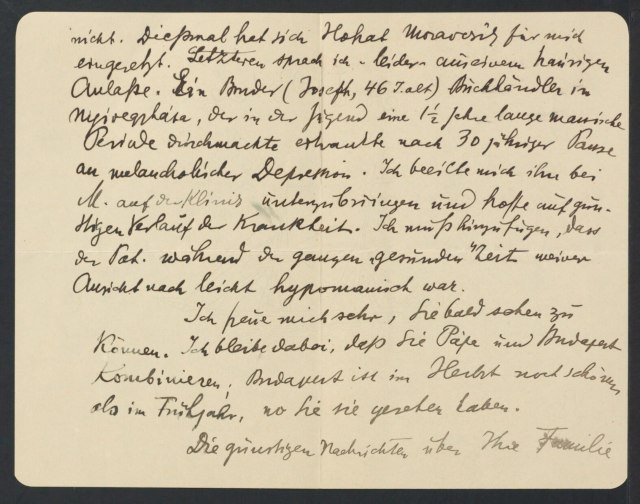 nicht. Dießmal hat sich Hofrat Moravcsik für mich
eingesetzt. Letzteren sprach ich - leider - aus einem traurigen
Anlaße. Ein Bruder (Joseph, 46 J. alt) Buchhändler in
Nyiregyháza, der in der Jugend eine 1½ Jahre lange manische
Periode durchmachte erkrankte nach 30 jähriger Pause
an melancholischer Depression. Ich beeilte mich ihn bei
M. auf der Klinik unterzubringen und hoffe auf gün-
stigen Verlauf der Krankheit. Ich muß hinzufügen, dass
der Pat. während der ganzen „gesunden" Zeit meiner
Ansicht nach leicht hypomanisch war.
Ich freue mich sehr, Sie bald sehen zu
können. Ich bleibe dabei, daß Sie Pápa und Budapest
kombinieren. Budapest ist im Herbst noch schöner
als im Frühjahr, wo Sie sie gesehen haben.
Die günstigen Nachrichten über Ihre Familie